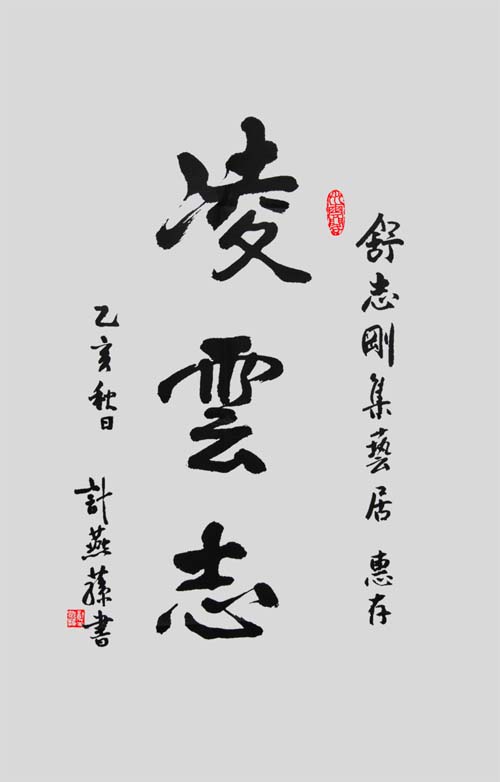 舒志剛集藝居 惠存
凌雲志
乙亥秋日
計燕蓀書